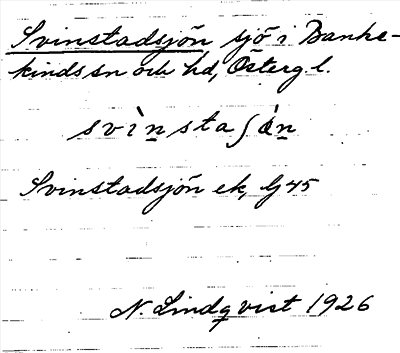 Svinstadsjön sjö i Banke-
kinds sn och hd, Österg l.
svìn̲staʃön̲
Svinstadsjön ek, Gj 45
N. Lindqvist 1926